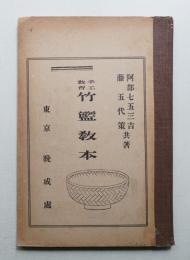 阿部七五三吉共著
藤五代策
手工教育
竹籃教本
東京 晩成處